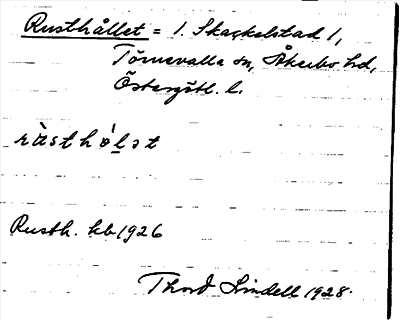 Rusthållet = 1. Skackelstad 1,
Törnevalla sn, Åkerbo hd,
Östergötl. l.
rùsthólət
Rusth. kb 1926
Thord Lindell 1928.